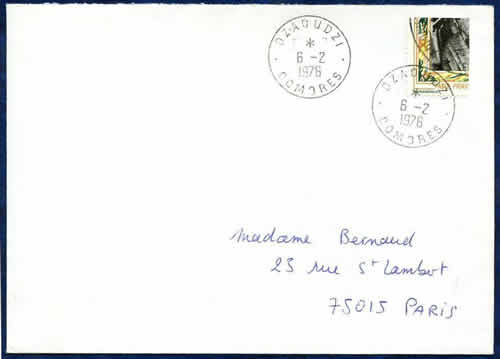 DZAOUDZI
*
6 -2
1976
COMORES
DZAOUDZI
*
6 -2
1976
COMORES
Madame Bernaud
23 rue St Lambert
75015 PARIS